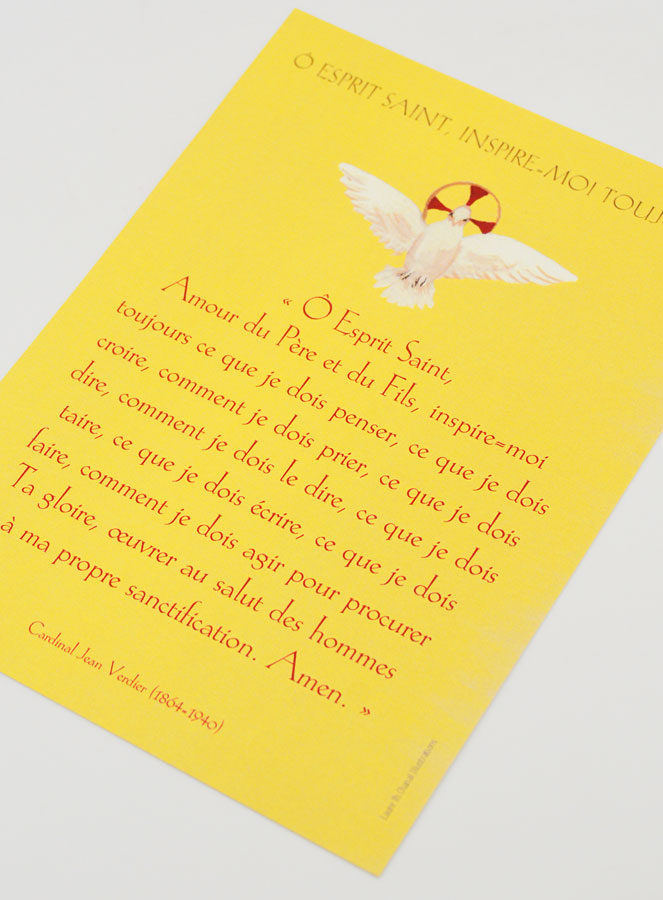 Ô ESPRIT SAINT, INSPIRE=MOI TOUJ
« Ô Esprit Saint,
Amour du Père et du Fils, inspire=moi
toujours ce que je dois penser, ce que je dois
croire, comment je dois prier, ce que je dois
dire, comment je dois le dire, ce que je dois
taire, ce que je dois écrire, ce que je dois
faire, comment je dois agir pour procurer
Ta gloire, œuvrer au salut des hommes
à ma propre sanctification. Amen. »
Cardinal Jean Verdier (1864=1940)
Laure Th Chanal Illustrations